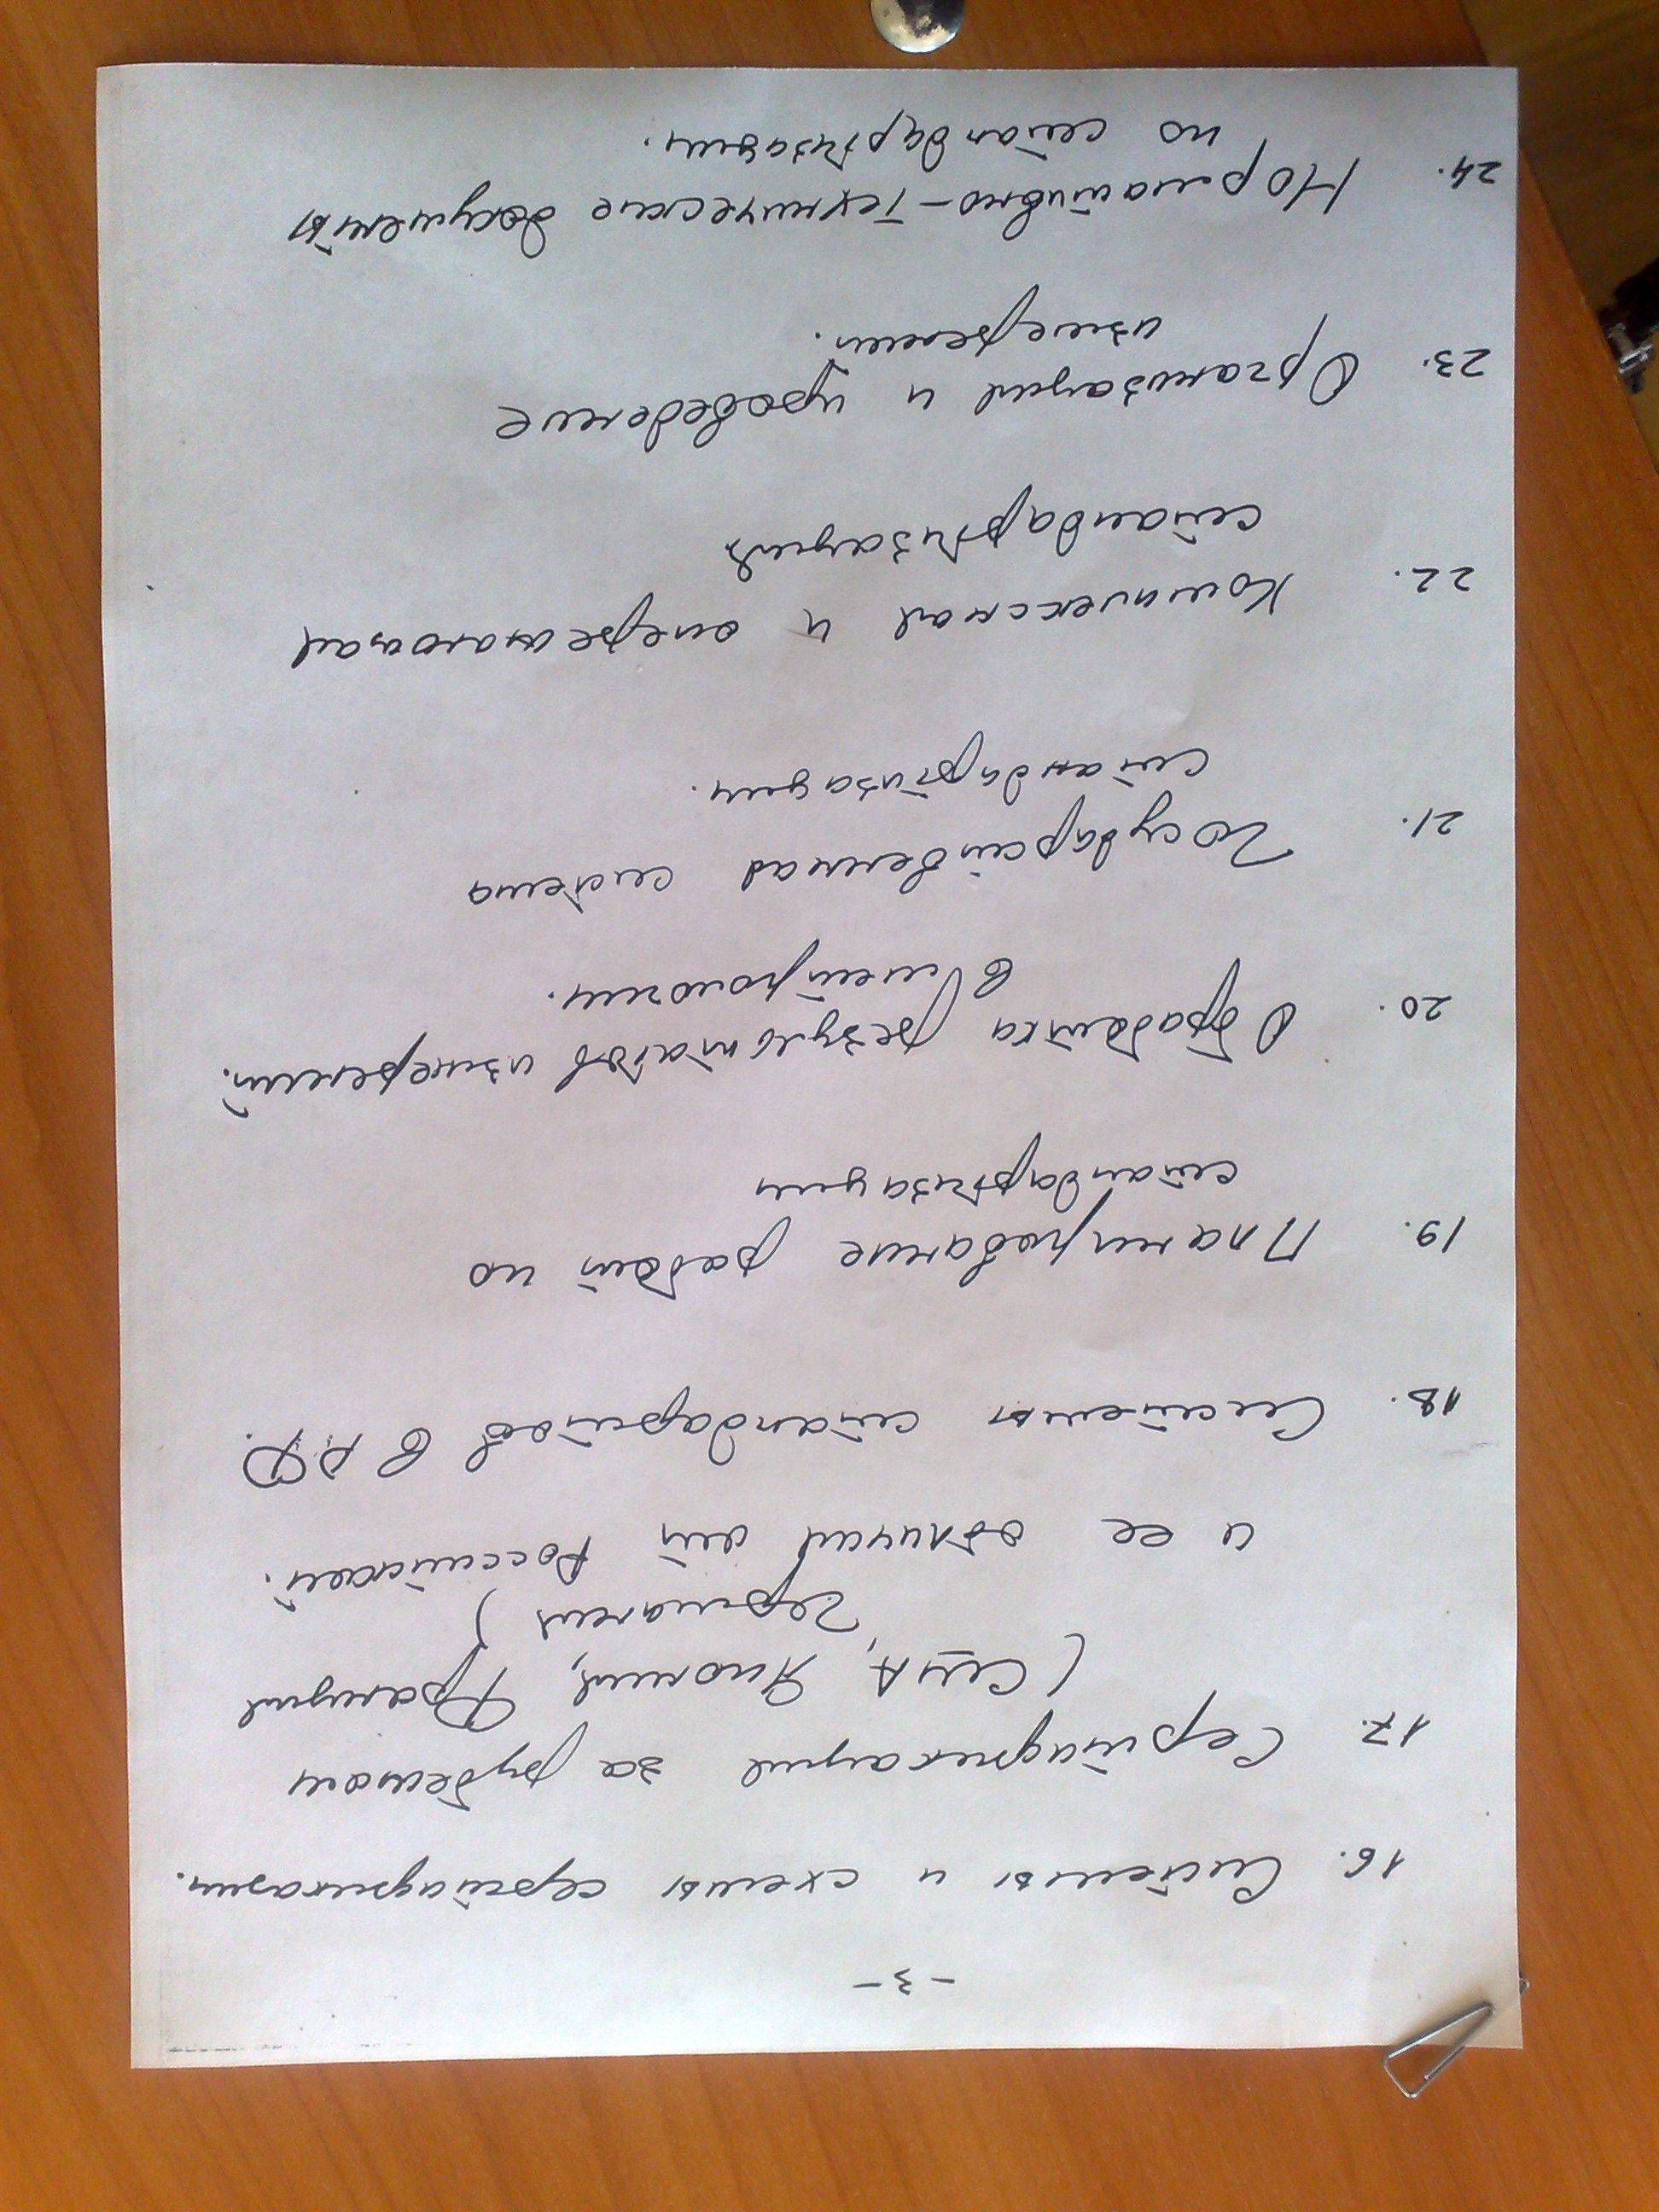 - 3 -
16. Системы и схемы сертификации.
17. Сертификация за рубежом
(США, Япония, Франция
Германия)
и ее отличия от Российской.
18. Системы стандартов в РФ.
19. Планирование работ по
стандартизации
20. Обработка результатов измерений.
в метрологии.
21. Государственная система
стандартизации.
22. Комплексная и опережающая
стандартизация
23. Организация и проведение
измерений.
24. Нормативно-технические документы
по стандартизации.